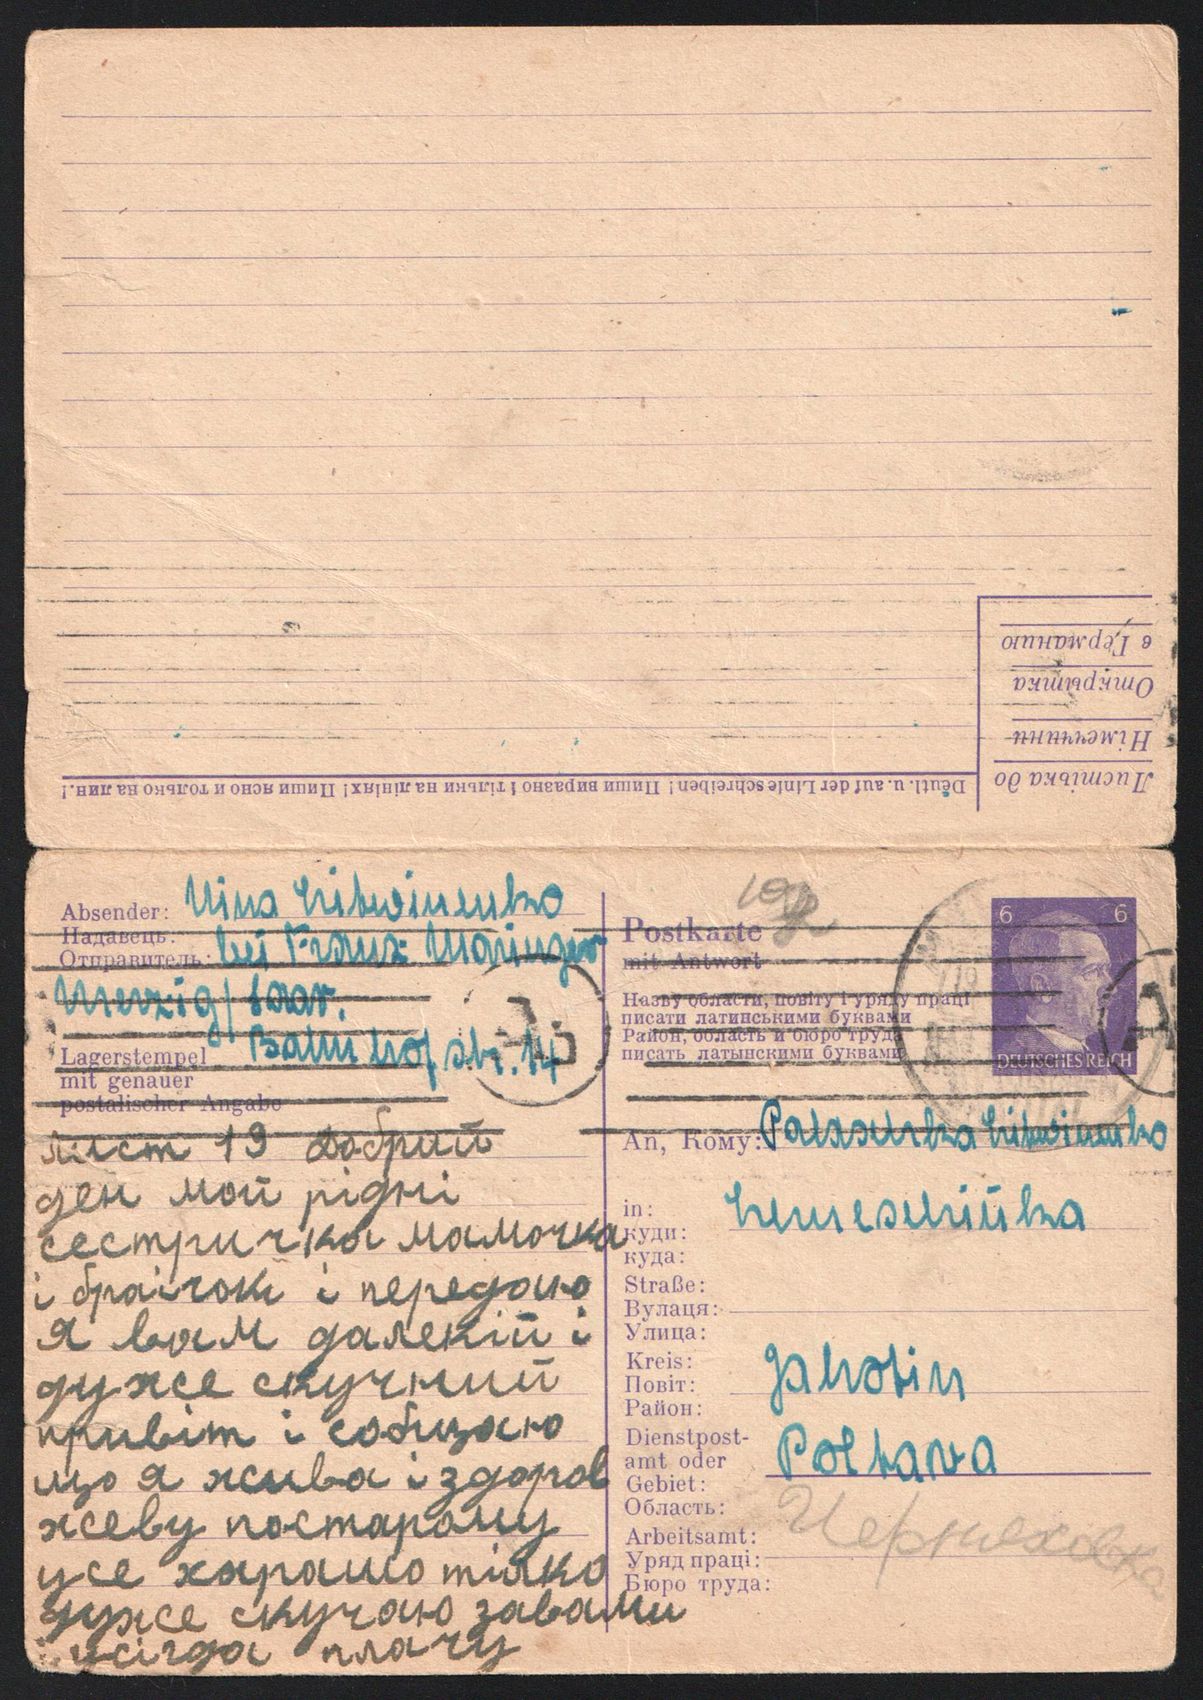 в Германию
Открытка
Німеччини
Листівка до
Deutl. u. auf der Linie schreiben! Пиши виразно і тільки на лініях! Пиши ясно и только на лин.!
Absender: Nina Litwinenko
Надавець:
Отправитель: bei Franz Maringer
Merzig/Saar.
Bahnhofstr. 14
Lagerstempel
mit genauer
postalischer Angabe
лист 19 Добрий
ден мой рідні
сестричка мамочка
і браічок і передаю
я вам далекій і
дуже скучний
привіт і собщаю
що я жива і здоров
жеву постарому
усе харашо тілко
дуже скучаю завами
і усігда плачу
Postkarte
mit Antwort
Назву области, повіту і уряду праці
писати латинськими буквами
Район, область и бюро труда
писать латынскими буквами
6 6
DEUTSCHES REICH
A
A
An, Кому: Litwinenko
in:
куди:
куда:
Straße:
Вулаця:
Улица:
Kreis: Jahotin
Повіт:
Район:
Dienstpost-
amt oder Poltava
Gebiet:
Область:
Arbeitsamt:
Уряд праці:
Бюро труда:
Черняховка